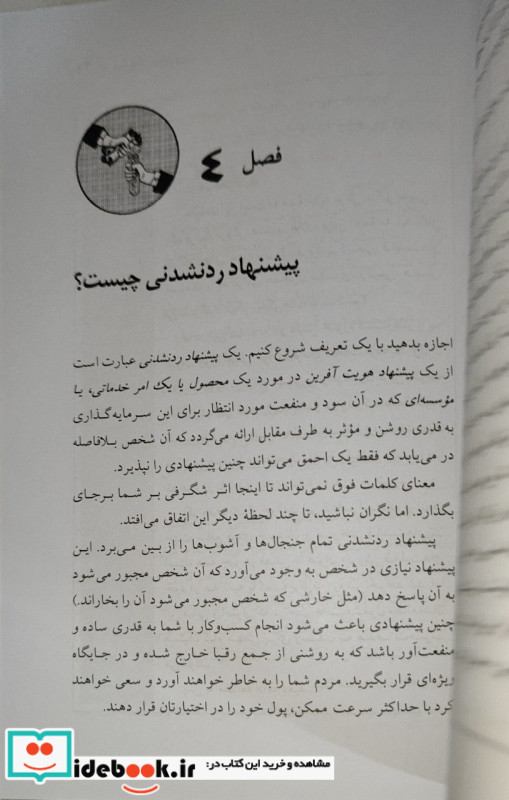 فصل ۴
پیشنهاد ردنشدنی چیست؟
اجازه بدهید با یک تعریف شروع کنیم. یک پیشنهاد ردنشدنی عبارت است
از یک پیشنهاد هویت آفرین در مورد یک محصول یا یک امر خدماتی، یا
مؤسسه‌ای که در آن سود و منفعت مورد انتظار برای این سرمایه‌گذاری
به قدری روشن و مؤثر به طرف مقابل ارائه می‌گردد که آن شخص بلافاصله
در می‌یابد که فقط یک احمق می‌تواند چنین پیشنهادی را نپذیرد.
معنای کلمات فوق نمی‌تواند تا اینجا اثر شگرفی بر شما برجای
بگذارد. اما نگران نباشید، تا چند لحظهٔ دیگر این اتفاق می‌افتد.
پیشنهاد ردنشدنی تمام جنجال‌ها و آشوب‌ها را از بین می‌برد. این
پیشنهاد نیازی در شخص به وجود می‌آورد که آن شخص مجبور می‌شود
به آن پاسخ دهد (مثل خارشی که شخص مجبور می‌شود آن را بخاراند.)
چنین پیشنهادی باعث می‌شود انجام کسب‌وکار با شما به قدری ساده و
منفعت‌آور باشد که به روشنی از جمع رقبا خارج شده و در جایگاه
ویژه‌ای قرار بگیرید. مردم شما را به خاطر خواهند آورد و سعی خواهند
کرد با حداکثر سرعت ممکن، پول خود را در اختیارتان قرار دهند.
مشاهده و خرید این کتاب در:
idebook.ir